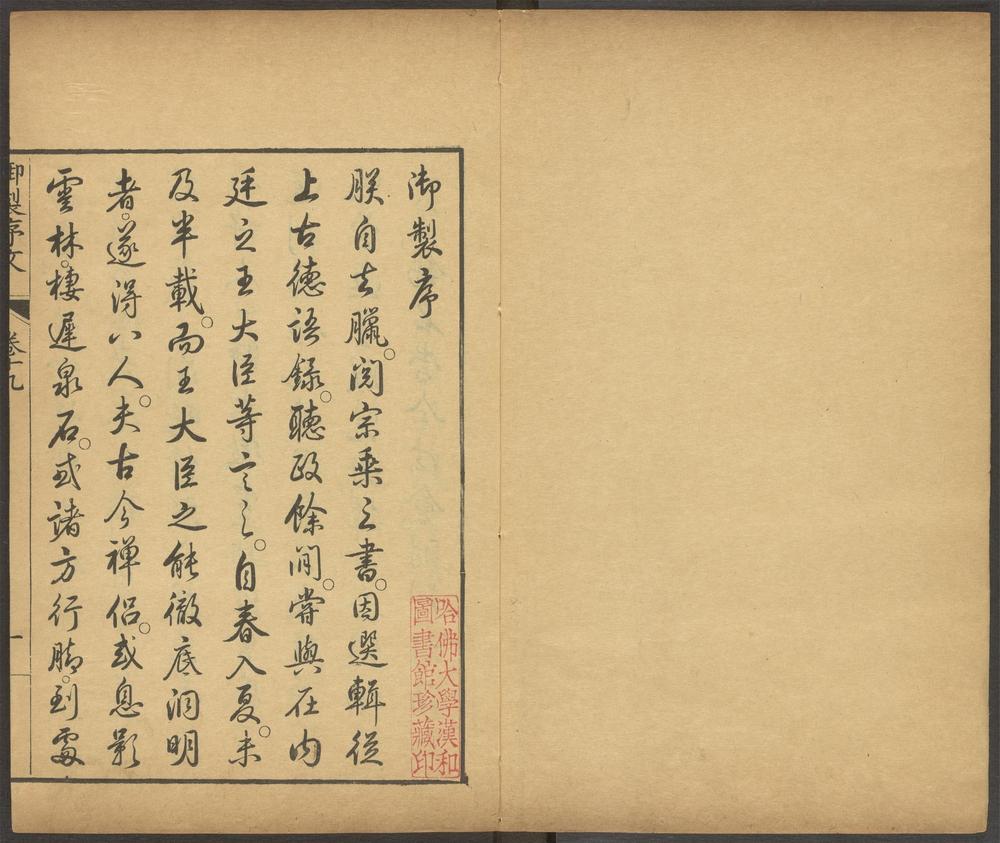 御製序
朕自去臘。閱宗乘之書。因選輯從
上古德語錄。聽政餘閒。嘗與在內
廷之王大臣等言之。自春入夏。未
及半載。而王大臣之能徹底洞明
者。遂得八人。夫古今禪侶。或息影
雲林。棲遲泉石。或諸方行腳。到處
御製序文 卷十九 一
哈佛大學漢和
圖書館珍藏印